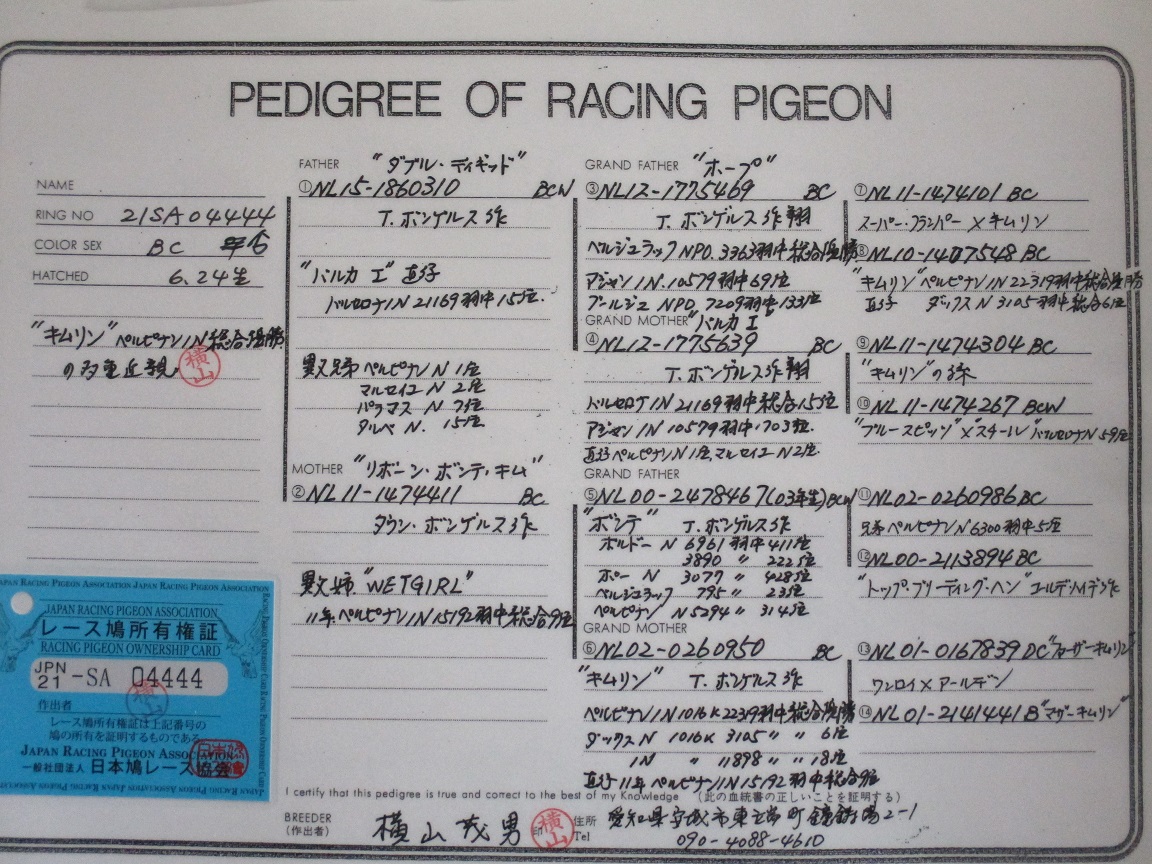 PEDIGREE OF RACING PIGEON
NAME
RING NO 21SA04444
COLOR SEX BC
HATCHED 6.24生
"キムリン" ペルピナンIN総合優勝
の多重近親
横山
JAPAN RACING PIGEON ASSOCIATION
レース鳩所有権証
RACING PIGEON OWNERSHIP CARD
JPN 21 -SA 04444
作出者
レース鳩所有権証は上記番号の
鳩の所有を証明するものである
JAPAN RACING PIGEON ASSOCIATION
一般社団法人 日本鳩レース協会
FATHER "ダブル・ディギッド"
①NL15-1860310 BCW
T. ボンゲルス作
"バルカ I" 直仔
バルセロナIN 21169羽中15位.
異父兄弟 ペルピナン N 1位
マルセイユ N 2位
パラマス N 7位
タルベ N. 15位
MOTHER "リボーン・ボンテ・キム"
②NL11-1474411 BC
ダウン・ボンゲルス作
異父姉 "WETGIRL"
11年ペルピナンIN15192羽中総合9位
GRAND FATHER "ホープ"
③NL12-1775469 BC
T. ボンゲルス作翔
ベルジュラックNPO. 3363羽中総合優勝
アジャンIN.10579羽中69位
ブールジュ NPO 7209羽中133位
GRAND MOTHER "バルカ I"
④NL12-1775639 BC
T. ボンゲルス作翔
バルセロナIN 21169羽中総合15位
アジャンIN 10579羽中・703位.
直仔ペルピナンN1位、マルセイユN2位.
GRAND FATHER
⑤NL00-2478467(03年生)BCW
"ボンテ" T. ボンゲルス作
ボルドー N 6961羽中411位
3890 〃 222位
ポー N 3077 〃 428位
ベルジュラック 795 〃 23位
ペルピナン N5294 〃 314位
GRAND MOTHER
⑥NL02-0260950 BC
"キムリン" T. ボンゲルス作
ペルピナンIN 1016K 22319羽中総合優勝
ダックスN 1016K 3105 〃 〃 6位
IN 〃 11898 〃 〃 18位
直仔 11年ペルピナンIN15192羽中総合9位
⑦NL11-1474101 BC
スーパー・クランパー×キムリン
⑧NL10-1407548 BC
"キムリン" ペルピナンIN22319羽中総合優勝
直子 ダックスN 3105羽中総合6位
⑨NL11-1474304 BC
"キムリン"の孫
⑩NL11-1474267 BCW
"ブルースピッツ"×"スチール" バルセロナN59位
⑪NL02-0260986 BC
兄弟ペルピナンN6300羽中5位
⑫NL00-2113894 BC
"トップ・ブリーディング・ヘン"
⑬NL01-0167839 DC"ファーザーキムリン"
ワンロイ×アールデン
⑭NL01-2141441 B"マザーキムリン"
I certify that this pedigree is true and correct to the best of my Knowledge (この血統書の正しいことを証明する)
BREEDER
(作出者) 横山茂男 印 横山
住所 愛知県安城市東
Tel 090-4088-4610